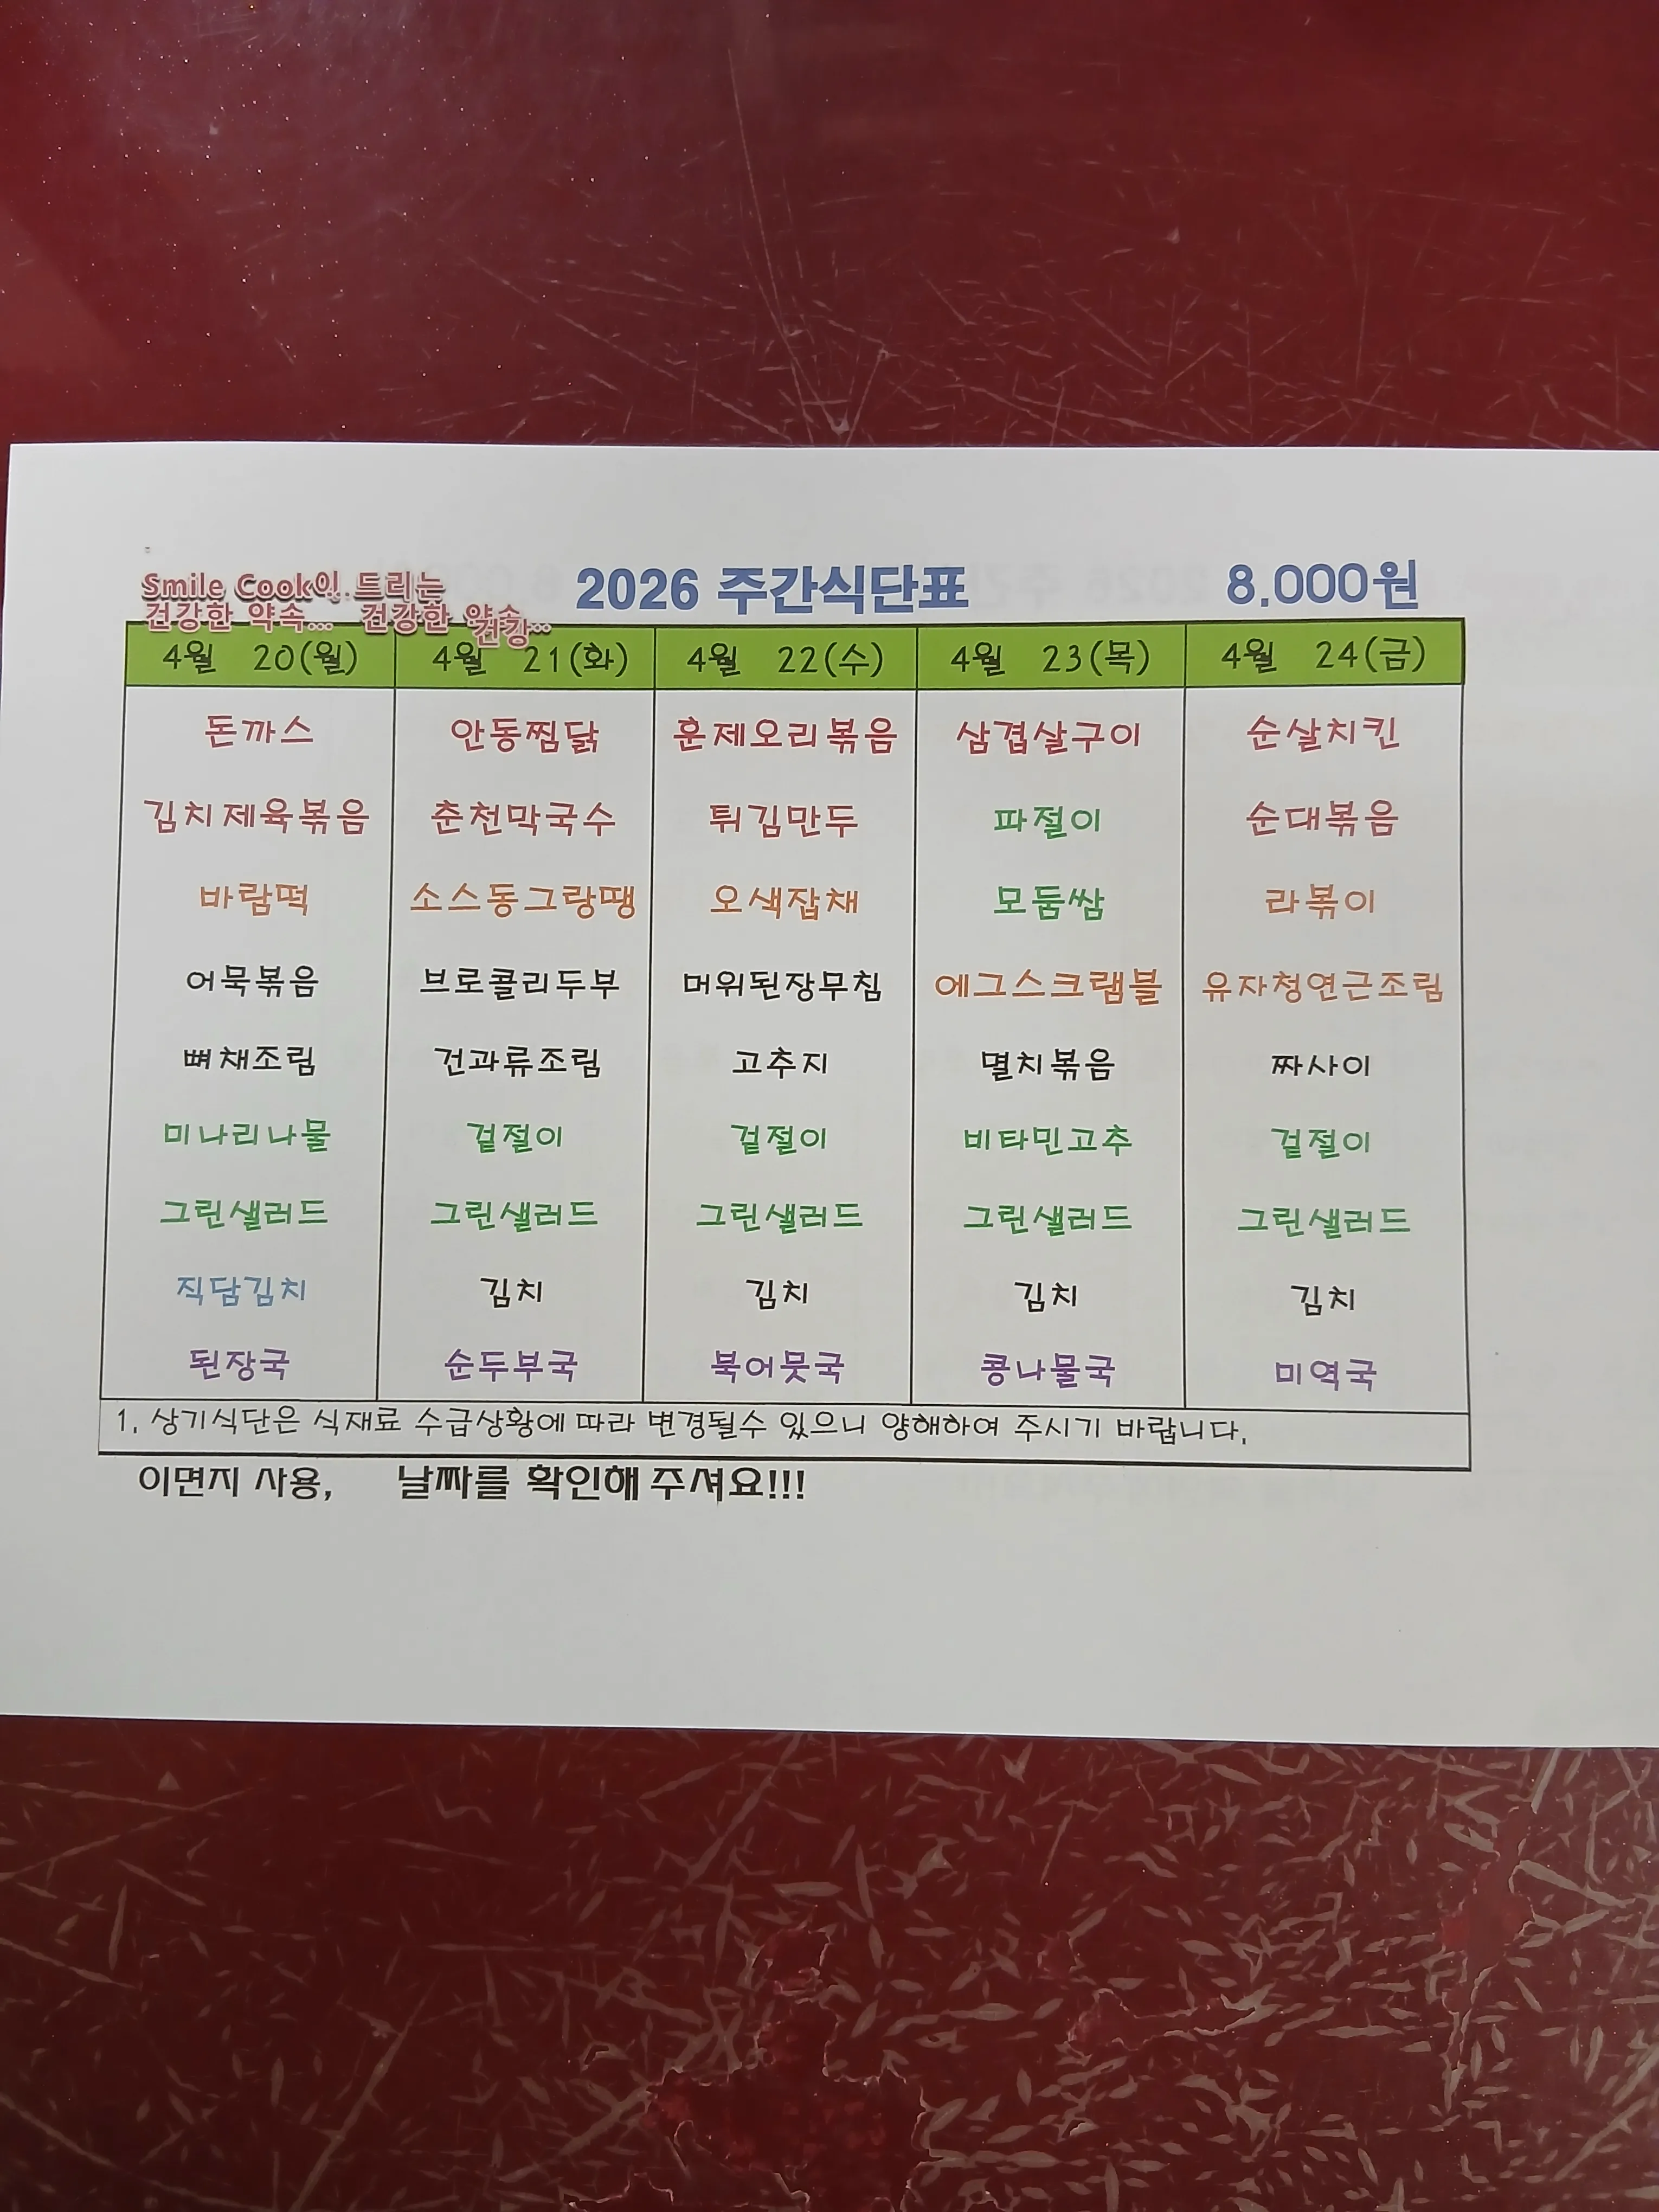 Smile Cook이 드리는
건강한 약속... 건강한 약속 건강...
2026 주간식단표 8.000원
4월 20(월) 4월 21(화) 4월 22(수) 4월 23(목) 4월 24(금)
돈까스 안동찜닭 훈제오리볶음 삼겹살구이 순살치킨
김치제육볶음 춘천막국수 튀김만두 파절이 순대볶음
바람떡 소스동그랑땡 오색잡채 모둠쌈 라볶이
어묵볶음 브로콜리두부 머위된장무침 에그스크램블 유자청연근조림
뼈채조림 건과류조림 고추지 멸치볶음 짜사이
미나리나물 겉절이 겉절이 비타민고추 겉절이
그린샐러드 그린샐러드 그린샐러드 그린샐러드 그린샐러드
직담김치 김치 김치 김치 김치
된장국 순두부국 북어뭇국 콩나물국 미역국
1. 상기식단은 식재료 수급상황에 따라 변경될수 있으니 양해하여 주시기 바랍니다.
이면지 사용, 날짜를 확인해 주셔요!!!